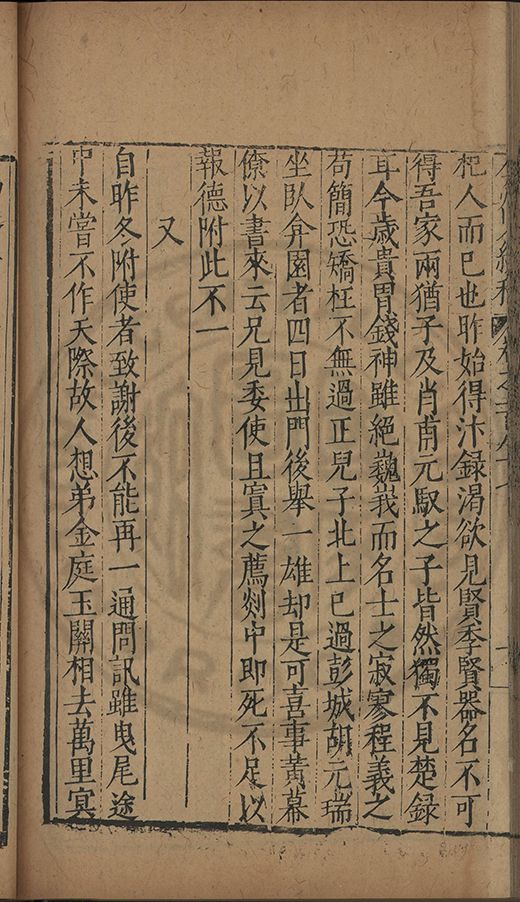 杞人而已也昨始得汴録渴欲見賢季賢器名不可
得吾家兩猶子及肖甫元馭之子皆然獨不見楚録
耳今歲貴胃錢神雖絕巍峩而名士之寂寥程義之
苟簡恐矯枉不無過正兒子北上已過彭城胡元瑞
坐臥弇園者四日出門後舉一雄却是可喜事黃幕
僚以書來云兄見委使且寘之薦剡中即死不足以
報德附此不一
又
自昨冬附使者致謝後不能再一通問訊雖曳尾途
中未嘗不作天際故人想弟金庭玉關相去萬里寘